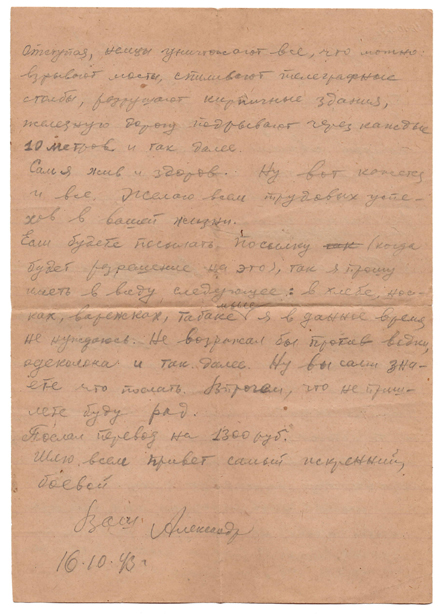 Отступая, немцы уничтожают все, что можно:
взрывают мосты, спиливают телеграфные
столбы, разрушают кирпичные здания,
железную дорогу подрывают через каждые
10 метров и так далее.
Сам я жив и здоров. Ну вот кажется
и все. Желаю всем трудовых успе-
хов в вашей жизни.
Если будете посылать посылку (когда
будет разрешение на это), так я прошу
иметь в виду следующее: в хлебе, нос-
ках, варежках, табаке я в данное время
не нуждаюсь. Не возражал бы против водки,
одеколона и так далее. Ну вы сами зна-
ете что послать. Впрочем, что не приш-
лете буду рад.
Послал перевод на 1300 руб.
Шлю всем привет самый искренний,
боевой
Ваш Александр
16.10.43 г.